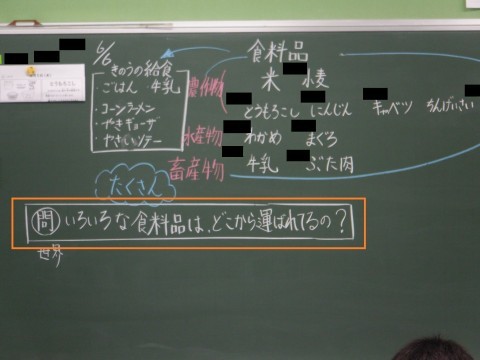 6/6
きのうの給食
・ごはん 牛乳
・コーンラーメン
・やきギョーザ
・やさいソテー
食料品
農作物
米 小麦
とうもろこし にんじん キャベツ ちんげいさい
水産物
わかめ まぐろ
畜産物
牛乳 ぶた肉
たくさん
問 いろいろな食料品は、どこから運ばれてるの?
世界